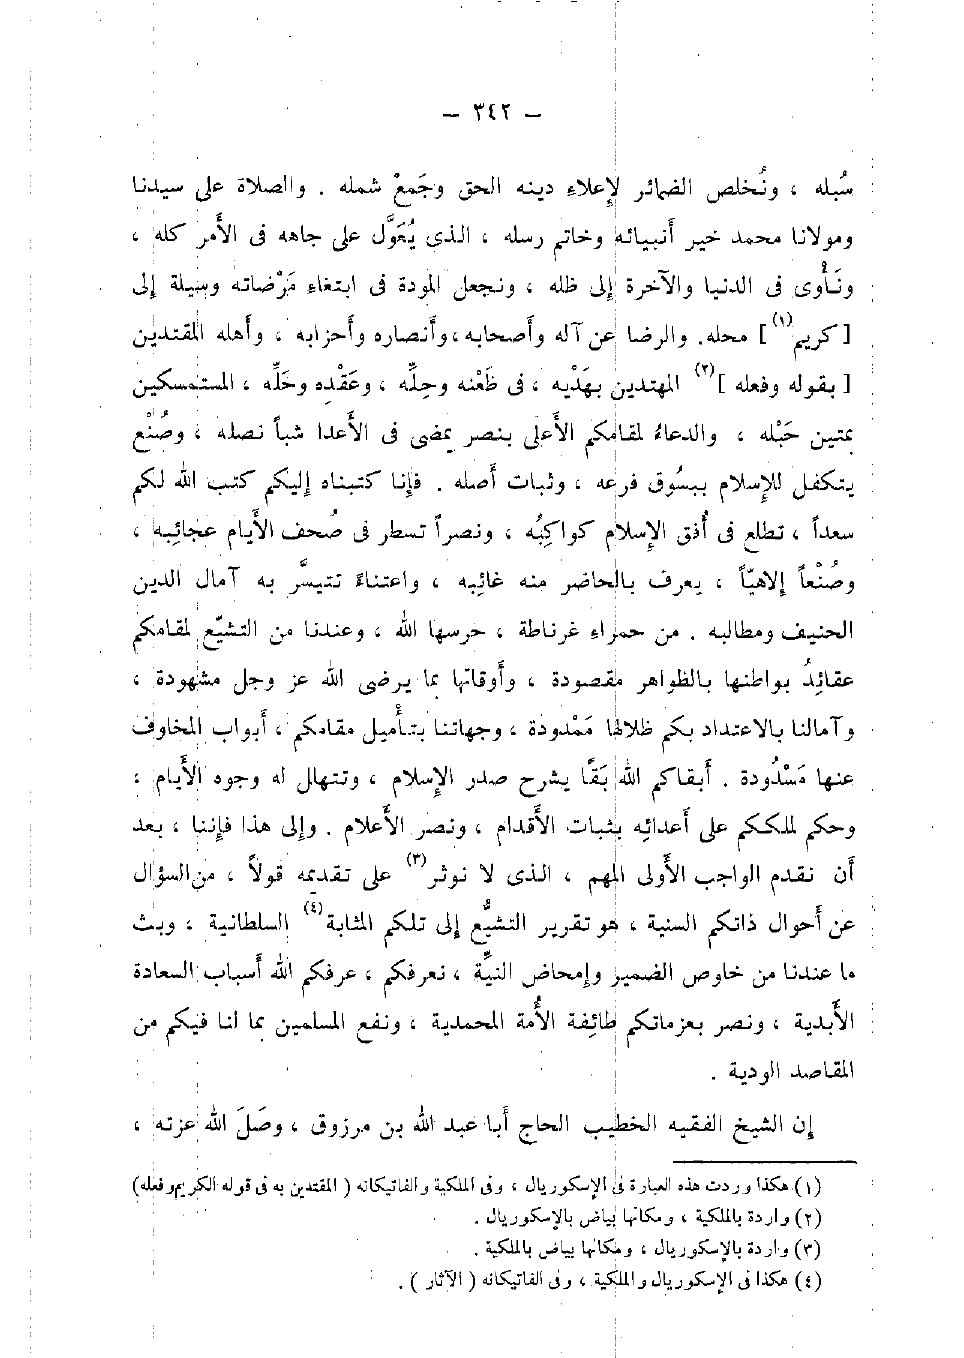 — ٣٤٢ —
سُبله ، ونُخلص الضمائر لإِعلاءِ دينه الحق وجَمعْ شمله . والصلاة على سيدنا
ومولانا محمد خير أَنبيائه وخاتم رسله ، الذى يُعَوَّل على جاهه فى الأَمر كله ،
ونَأْوى فى الدنيا والآخرة إِلى ظله ، ونجعل المودة فى ابتغاءِ مَرْضاته وسيلة إِلى
[ كريم(١) ] محله. والرضا عن آله وأَصحابه، وأَنصاره وأَحزابه ، وأَهله المقتدين
[ بقوله وفعله ](٢) المهتدين بهَدْيه ، فى ظَعْنه وحِلِّه ، وعَقْده وحَلِّه ، المستمسكين
بمتين حَبْله ، والدعاءُ لمقامكم الأَعلى بنصر يمضى فى الأَعدا شبأً نصله ، وصُنْع
يتكفل للإِسلام ببسُوق فرعه ، وثبات أَصله . فإِنا كتبناه إِليكم كتب الله لكم
سعداً ، تطلع فى أُفق الإِسلام كواكِبُه ، ونصراً تسطر فى صُحف الأَيام عجائبه ،
وصُنْعاً إِلاهيّاً ، يعرف بالحاضر منه غائبه ، واعتناءً تتيسَّر به آمال الدين
الحنيف ومطالبه . من حمراءِ غرناطة ، حرسها الله ، وعندنا من التشيّع لمقامكم
عقائِدُ بواطنها بالظواهر مقصودة ، وأَوقاتها بما يرضى الله عز وجل مشهودة ،
وآمالنا بالاعتداد بكم ظلالها مَمْدودة ، وجهاتنا بتأْميل مقامكم ، أَبواب المخاوف
عنها مَسْدُودة . أَبقاكم الله بَقًا يشرح صدر الإِسلام ، وتتهال له وجوه الأَيام ،
وحكم لملككم على أَعدائه بثبات الأَقدام ، ونصر الأَعلام . وإِلى هذا فإِننا ، بعد
أَن نقدم الواجب الأَولى المهم ، الذى لا نوثر(٣) على تقديمه قولاً ، من السؤال
عن أَحوال ذاتكم السنية ، هو تقرير التشيُّع إِلى تلكم المثابة(٤) السلطانية ، وبث
ما عندنا من خلوص الضمير وإِمحاض النيَّة ، نعرفكم ، عرفكم الله أَسباب السعادة
الأَبدية ، ونصر بعزماتكم طائِفة الأُمة المحمدية ، ونفع المسلمين بما لنا فيكم من
المقاصد الودية .
إِن الشيخ الفقيه الخطيب الحاج أَبا عبد الله بن مرزوق ، وصَلَ الله عزته ،
(١) هكذا وردت هذه العبارة فى الإسكوريال ، وفى الملكية والفاتيكانه ( المقتدين به فى قوله الكريم وفعله)
(٢) واردة بالملكية ، ومكانها بياض بالإسكوريال .
(٣) واردة بالإسكوريال ، ومكانها بياض بالملكية .
(٤) هكذا فى الإسكوريال والملكية ، وفى الفاتيكانه ( الآثار ) .